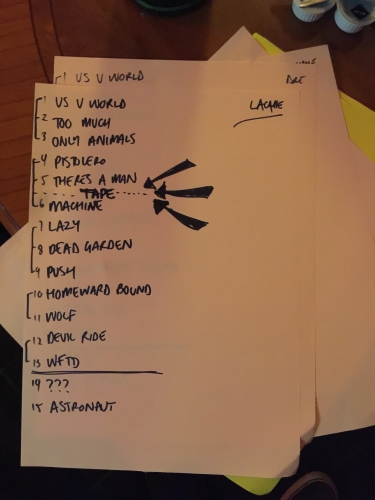 1 US V WORLD
DRE
LACHIE
1 US V WORLD
2 TOO MUCH
3 ONLY ANIMALS
4 PISTOLERO
5 THERES A MAN
TAPE
6 MACHINE
7 LAZY
8 DEAD GARDEN
9 PUSH
10 HOMEWARD BOUND
11 WOLF
12 DEVIL RIDE
13 WFTD
14 ???
15 ASTRONAUT